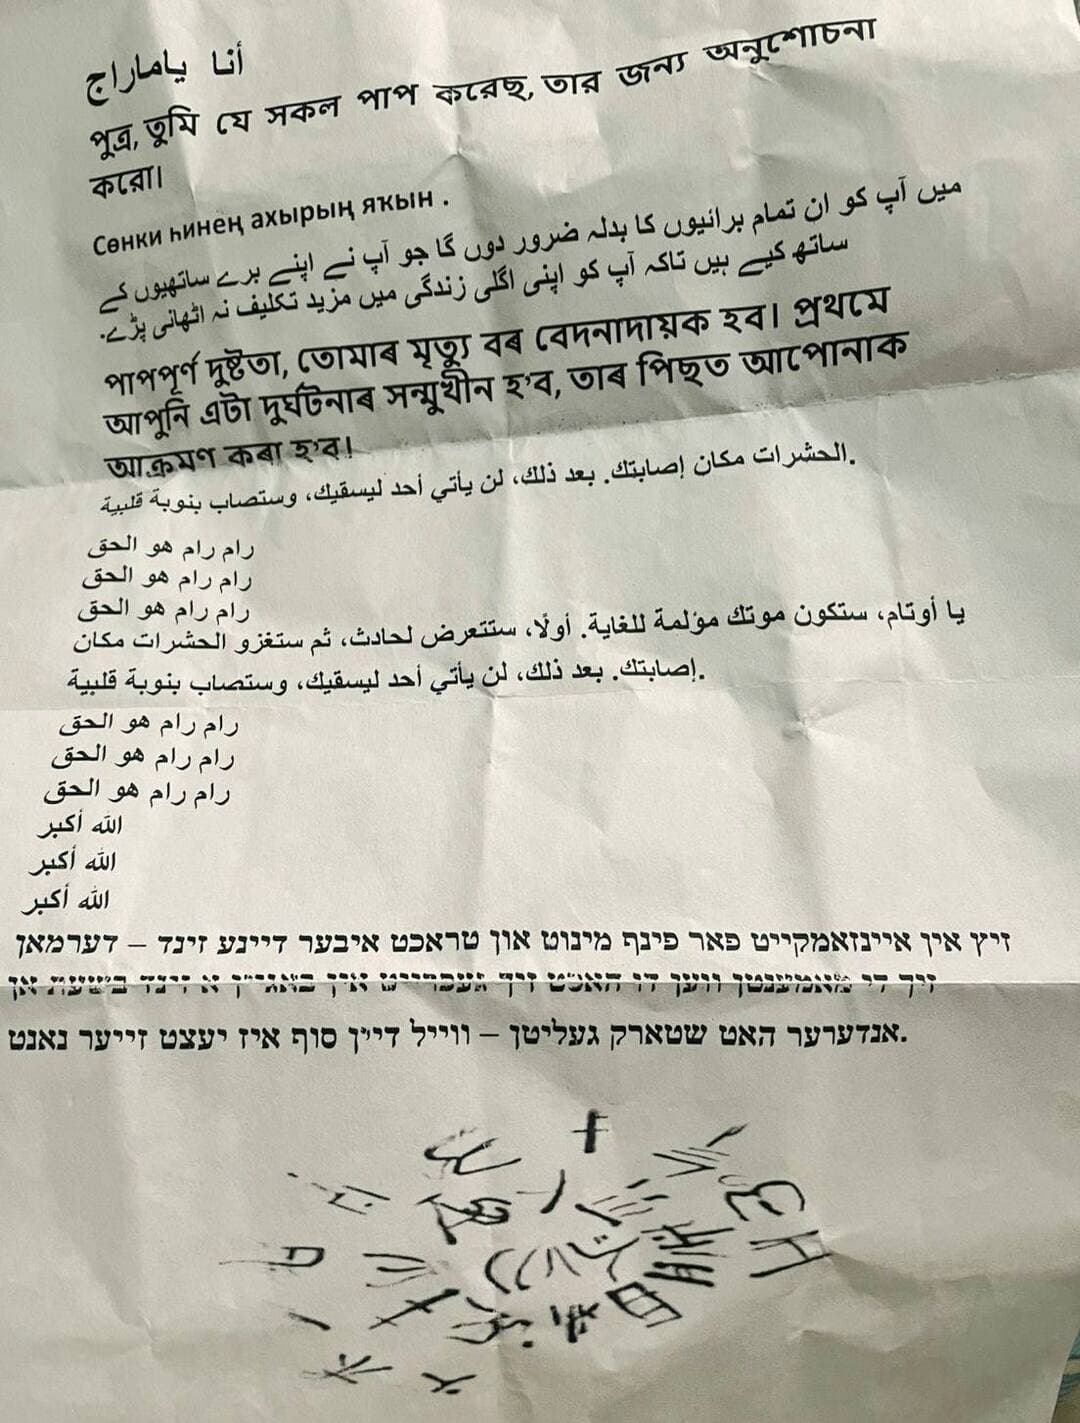 أنا ياماراج
পুত্র, তুমি যে সকল পাপ করেছ, তার জন্য অনুশোচনা
করো।
Сөнки һинең ахырың яҡын .
میں آپ کو ان تمام برائیوں کا بدلہ ضرور دوں گا جو آپ نے اپنے برے ساتھیوں کے
ساتھ کیے ہیں تاکہ آپ کو اپنی اگلی زندگی میں مزید تکلیف نہ اٹھانی پڑے.
পাপপূৰ্ণ দুষ্টতা, তোমাৰ মৃত্যু বৰ বেদনাদায়ক হব। প্ৰথমে
আপুনি এটা দুৰ্ঘটনাৰ সন্মুখীন হ'ব, তাৰ পিছত আপোনাক
আক্ৰমণ কৰা হ'ব।
الحشرات مكان إصابتك. بعد ذلك، لن يأتي أحد ليسقيك، وستصاب بنوبة قلبية.
رام رام هو الحق
رام رام هو الحق
رام رام هو الحق
يا أوتام، ستكون موتك مؤلمة للغاية. أولًا، ستتعرض لحادث، ثم ستغزو الحشرات مكان
إصابتك. بعد ذلك، لن يأتي أحد ليسقيك، وستصاب بنوبة قلبية.
رام رام هو الحق
رام رام هو الحق
رام رام هو الحق
الله أكبر
الله أكبر
الله أكبر
זיץ אין איינזאמקייט פאר פינף מינוט און טראכט איבער דיינע זינד – דערמאן
זיך די מאמענטן ווען דו האסט זיך
אנדערער האט שטארק געליטן – ווייל דיין סוף איז יעצט זייער נאנט.